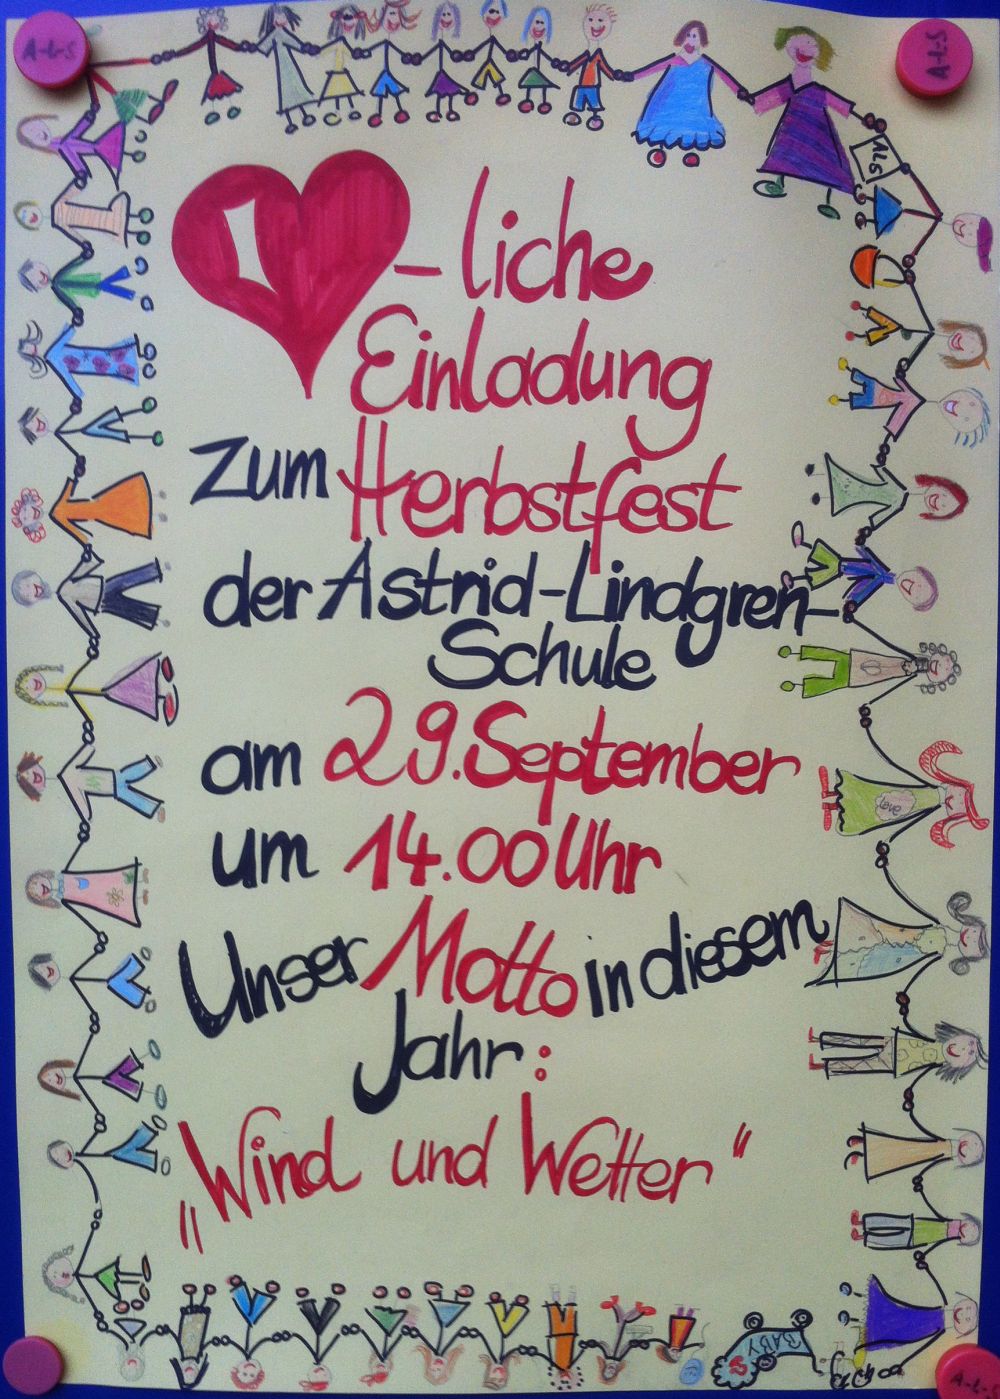 A-L-S
A-L-S
ALS
-liche
Einladung
zum Herbstfest
der Astrid-Lindgren-
Schule
am 29. September
um 14.00 Uhr
Unser Motto in diesem
Jahr:
„Wind und Wetter"
love
BABY
A-L-S